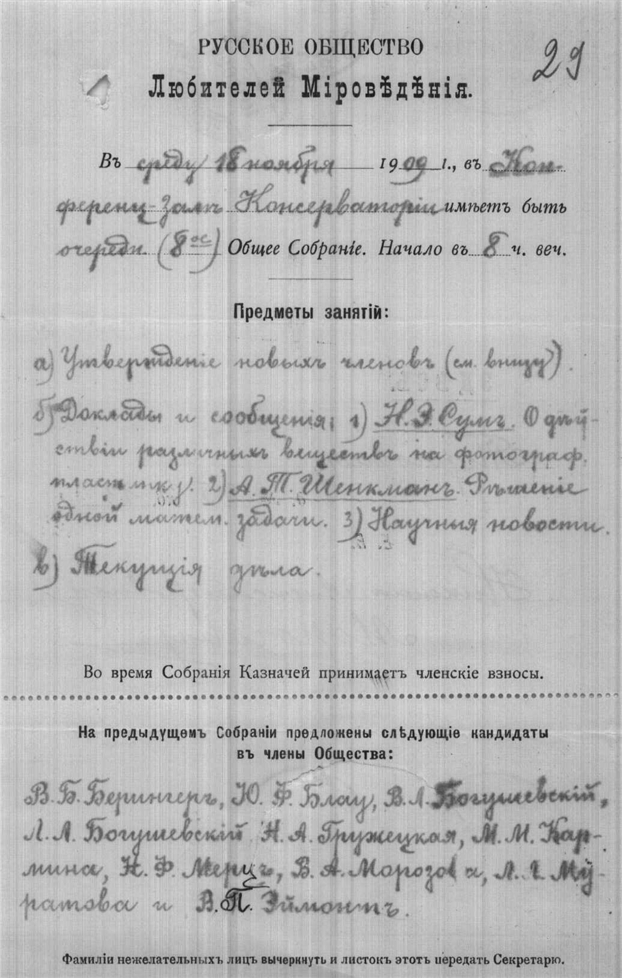 29
РУССКОЕ ОБЩЕСТВО
Любителей Міровѣдѣнія.
Въ среду 18 ноября 1909 г., въ Кон-
ференц-залѣ Консерваторіи имѣетъ быть
очередн. (8ое) Общее Собраніе. Начало въ 8 ч. веч.
Предметы занятій:
а) Утвержденіе новыхъ членовъ (см. внизу).
б) Доклады и сообщенія: 1) Н. Э. Сумъ. О дѣй-
ствіи различныхъ веществъ на фотограф.
пластинку. 2) А. Т. Шенкманъ. Рѣшеніе
одной матем. задачи. 3) Научныя новости.
в) Текущія дѣла.
Во время Собранія Казначей принимаетъ членскіе взносы.
На предыдущемъ Собраніи предложены слѣдующіе кандидаты
въ члены Общества:
В. Б. Берингеръ, Ю. Ф. Блау, В. Л. Богушевскій,
Л. Л. Богушевскій Н. А. Гружецкая, М. М. Кар-
мина, Н. Ф. Мерцъ, В. А. Морозова, Л. Му-
ратова и В. П. Эймонтъ.
Фамиліи нежелательныхъ лицъ вычеркнуть и листокъ этотъ передать Секретарю.